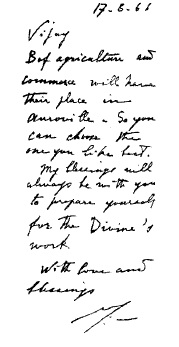 17-8-66
Vijay
Bof agriculture and
commerce will have
their place in
Auroville - So you
can choose the
one you like best.
My blessings will
always be with you
to prepare yourself
for the Divine's
work
With love and
blessings